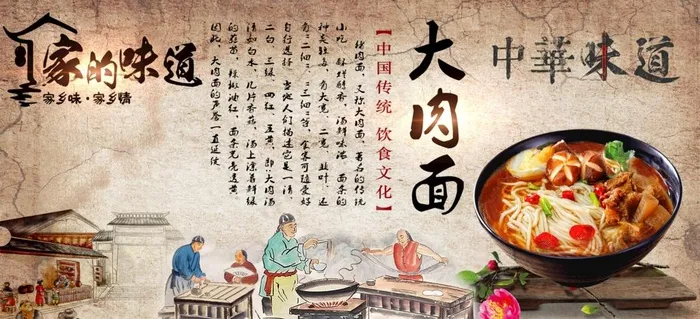 家的味道
家乡味·家乡情
中華味道
大肉面
【中国传统 饮食文化】
猪肉面，又称大肉面，著名的传统
小吃，酥烂醇香，汤鲜味浓，面条的
种多，有大宽、二宽、韭叶、还
有二细、三细等，食客可随爱好
自行选择。当地人们描述它是一清、
二白、三绿、四红、五黄，即:大肉汤
清如白水，几片香菇，汤上漂着鲜绿
的蒜苗，辣椒油红，面条光亮透黄。
因此，大肉面的声誉一直延续